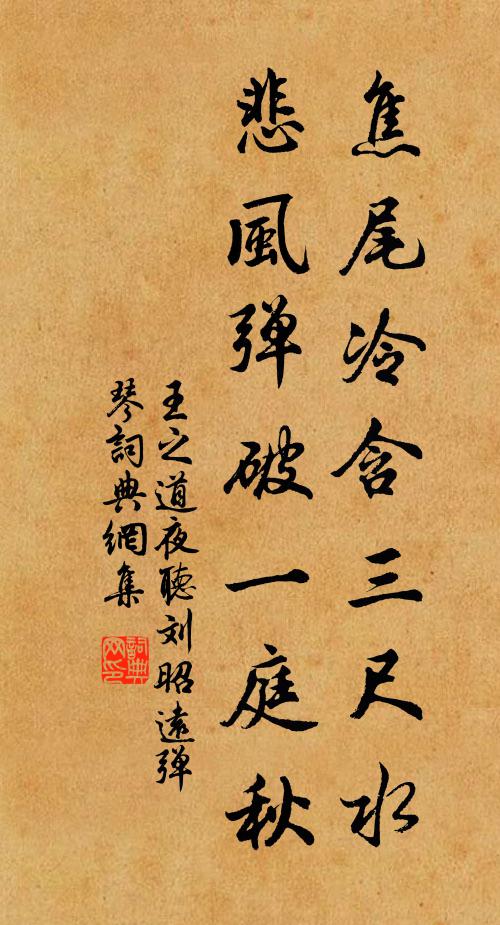 焦尾冷含三尺水
悲風弹破一庭秋
王之道夜聽刘昭遠弹
琴詞典網集
詞典
网印